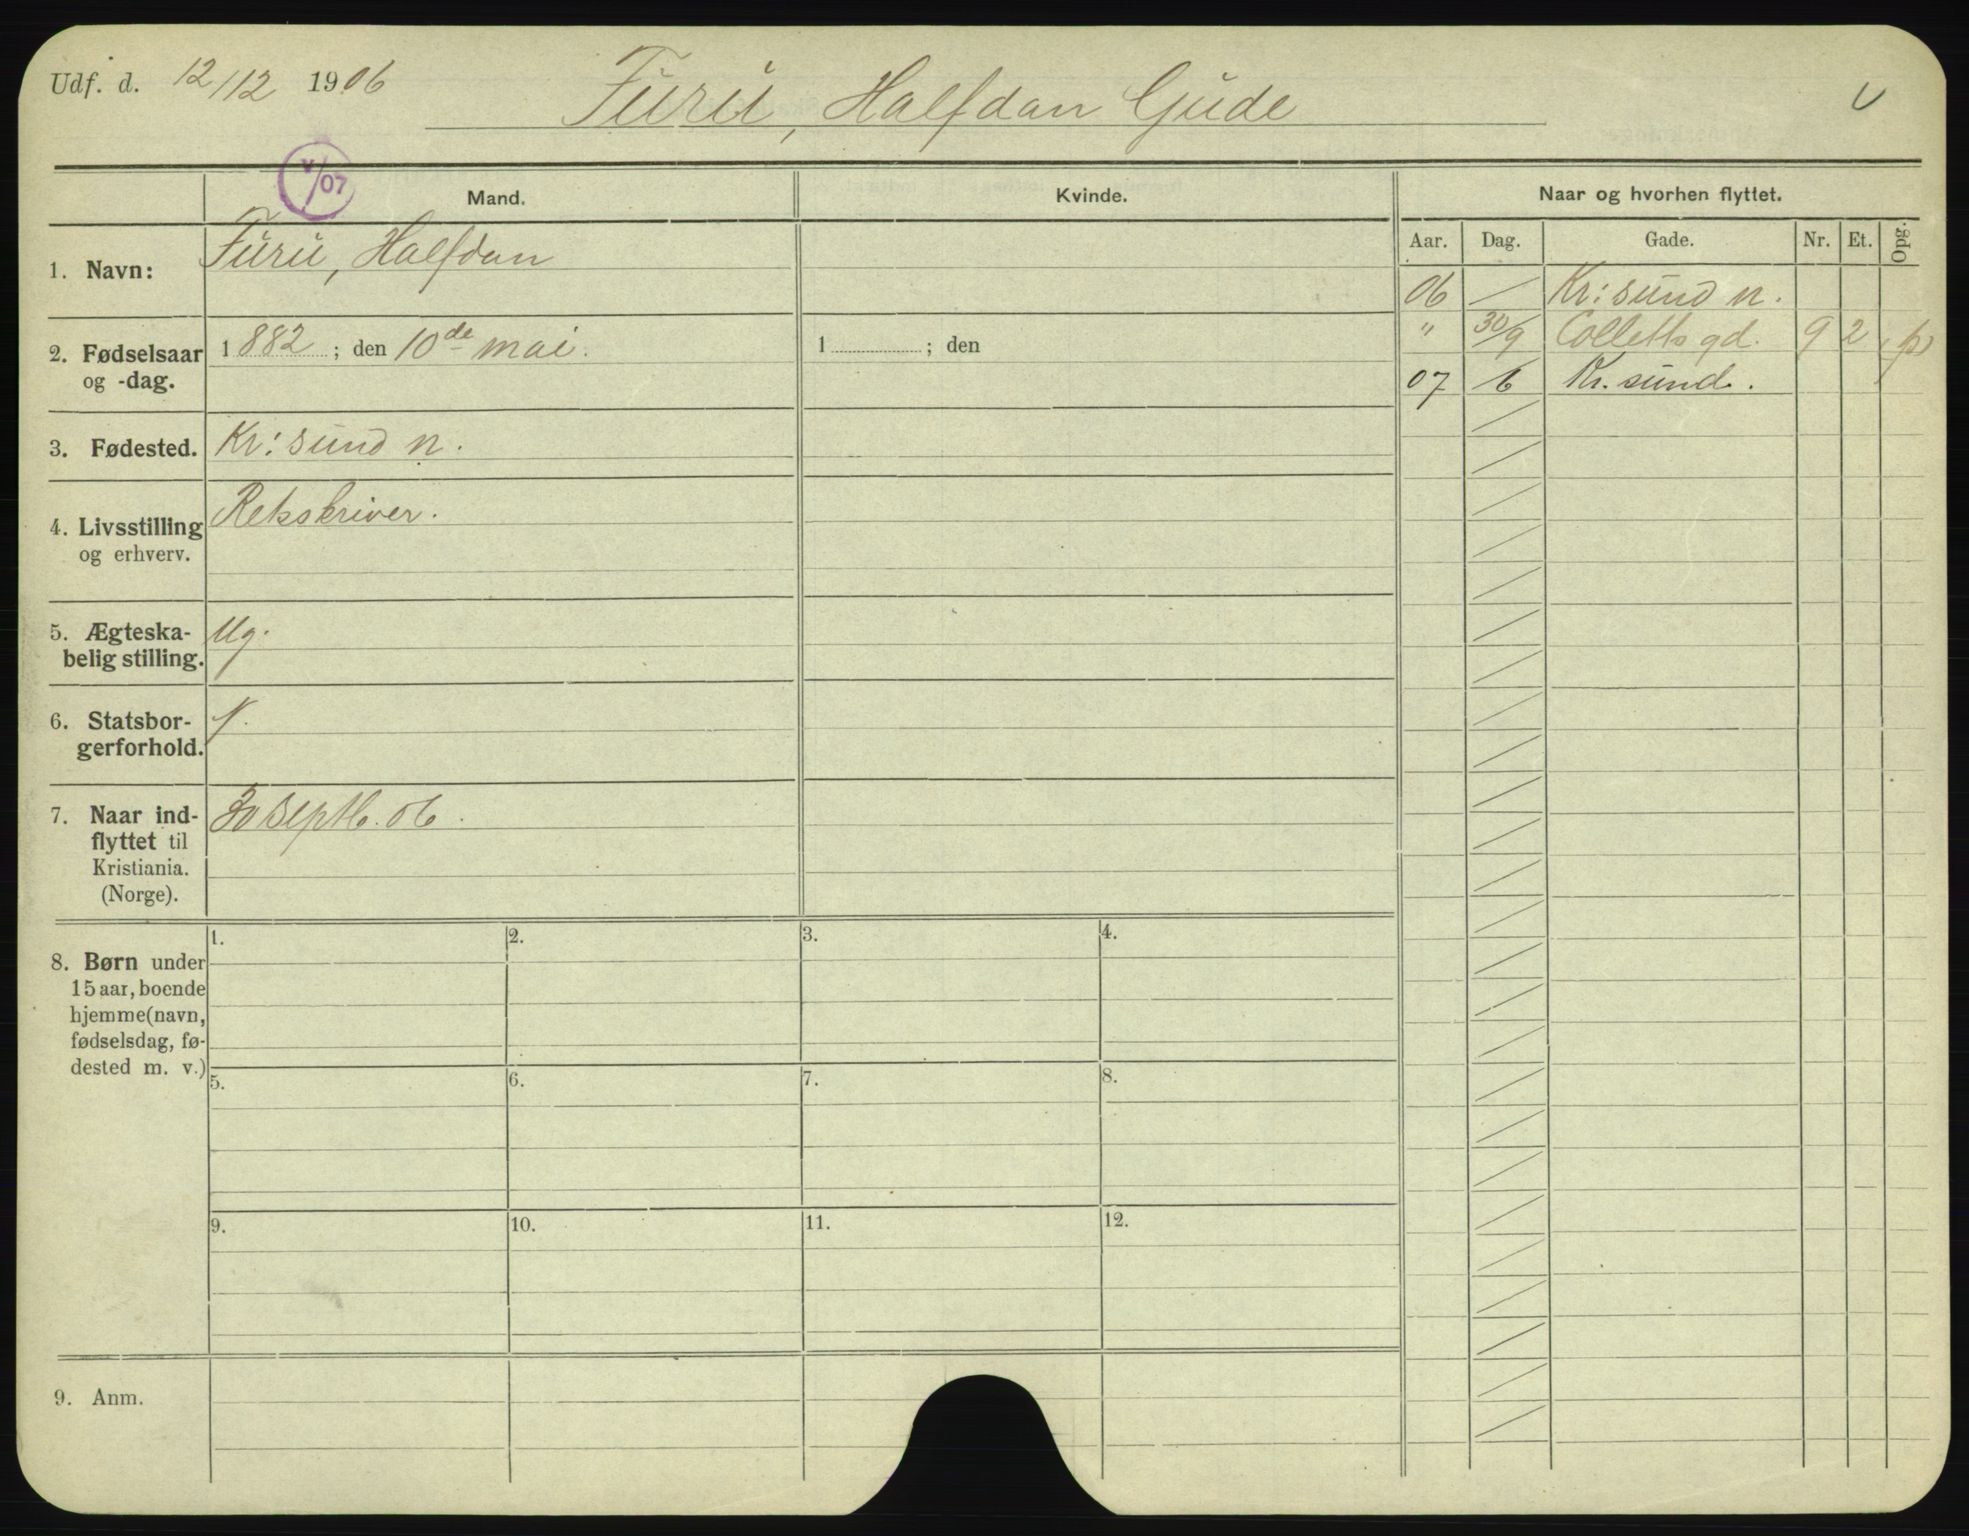 Udf. d. 12/12 1906
Furu, Halfdan Gude
V
V/07
Mand.
Kvinde.
Naar og hvorhen flyttet.
Aar. Dag. Gade. Nr. Et. Opg.
1. Navn: Furu, Halfdan
06 Kr: sund n.
" 30/9 Colletts gd. 9 2 (p)
07 6 Kr. sund.
2. Fødselsaar og -dag. 1882; den 10de mai. 1 ; den
3. Fødested. Kr: sund n.
4. Livsstilling og erhverv. Retsskriver.
5. Ægteska-
belig stilling. Ug.
6. Statsbor-
gerforhold. N.
7. Naar ind-
flyttet til
Kristiania.
(Norge).
30 septb. 06.
8. Børn under
15 aar, boende
hjemme (navn,
fødselsdag, fø-
dested m. v.)
1. 2. 3. 4.
5. 6. 7. 8.
9. 10. 11. 12.
9. Anm.